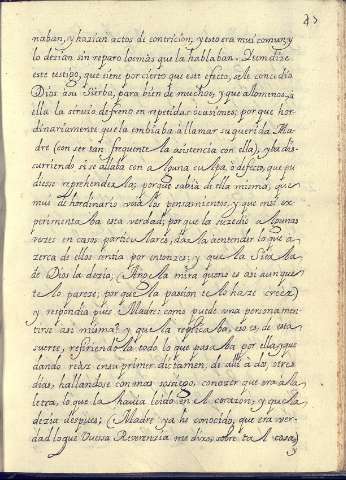 43
naban, y hazian actos de contricion; y esto era mui comun, y
lo dezian sin reparo los mas que la hablaban. Quien dize
este testigo, que tiene por cierto que este efecto, se le concedio
Dios a su Sierba, para bien de muchos, y que a lo menos, a
ella la siruio de freno en repetidas ocasiones; porque hor-
dinariamente que la embiaba a llamar su querida Ma-
dre (con ser tan frequente la asistencia con ella), yba dis-
curriendo si se allaba con alguna culpa, ò defecto, que pu-
diesse reprehenderla; porque sabia de ella misma, que
mui de hordinario veia los pensamientos, y que mas ex-
perimentaba esta verdad; porque la suzediò algunas
vezes en casos particulares, darla a entender lo que a-
zerca de ellos sentia por entonzes; y que la Sierba
de Dios la dezia; (Anjo la mira que no es asi aunque
te lo pareze; porque la pasion te lo haze creer)
y respondia pues Madre: como puede una persona men-
tirse asi misma? y que la replicaba, eso es, de esta
suerte, refiriendola todo lo que pasaba por ella, y que-
dando redaz en su primer dictamen, de alli à dos, ò tres
dias, hallandose con mas sosiego, conozer que era a la
letra, lo que la hauia leido en el corazon; y que la
dezia despues; (Madre ya he conocido, que era ver-
dad lo que Vuessa Reverensia me dixo, sobre tal cosa)
y